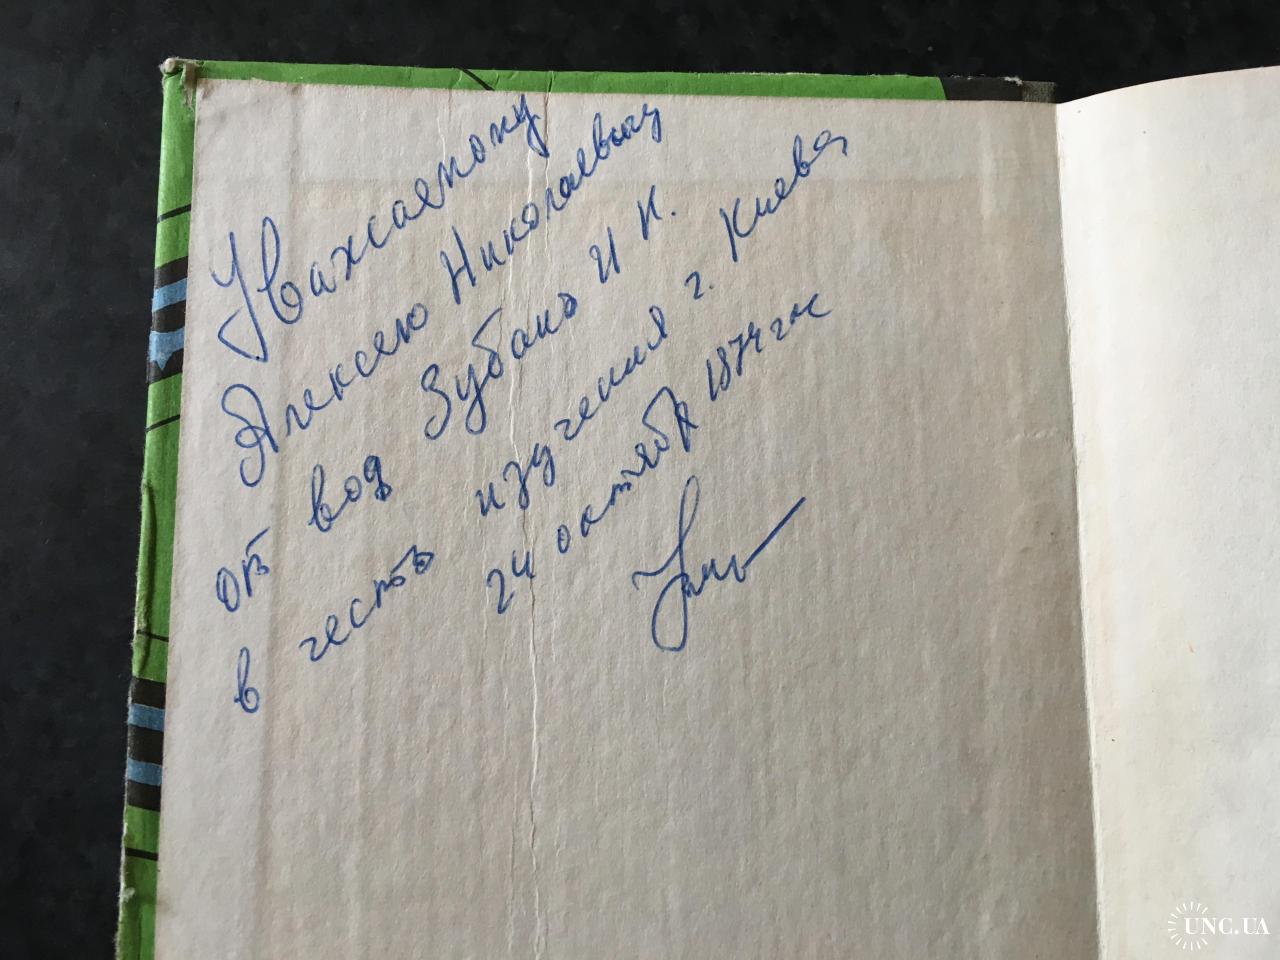 Уважаемому
Алексею Николаевичу
от вод Зубано И К.
в честь изучения г. Киева
24 октября 1874 г
UNC.UA